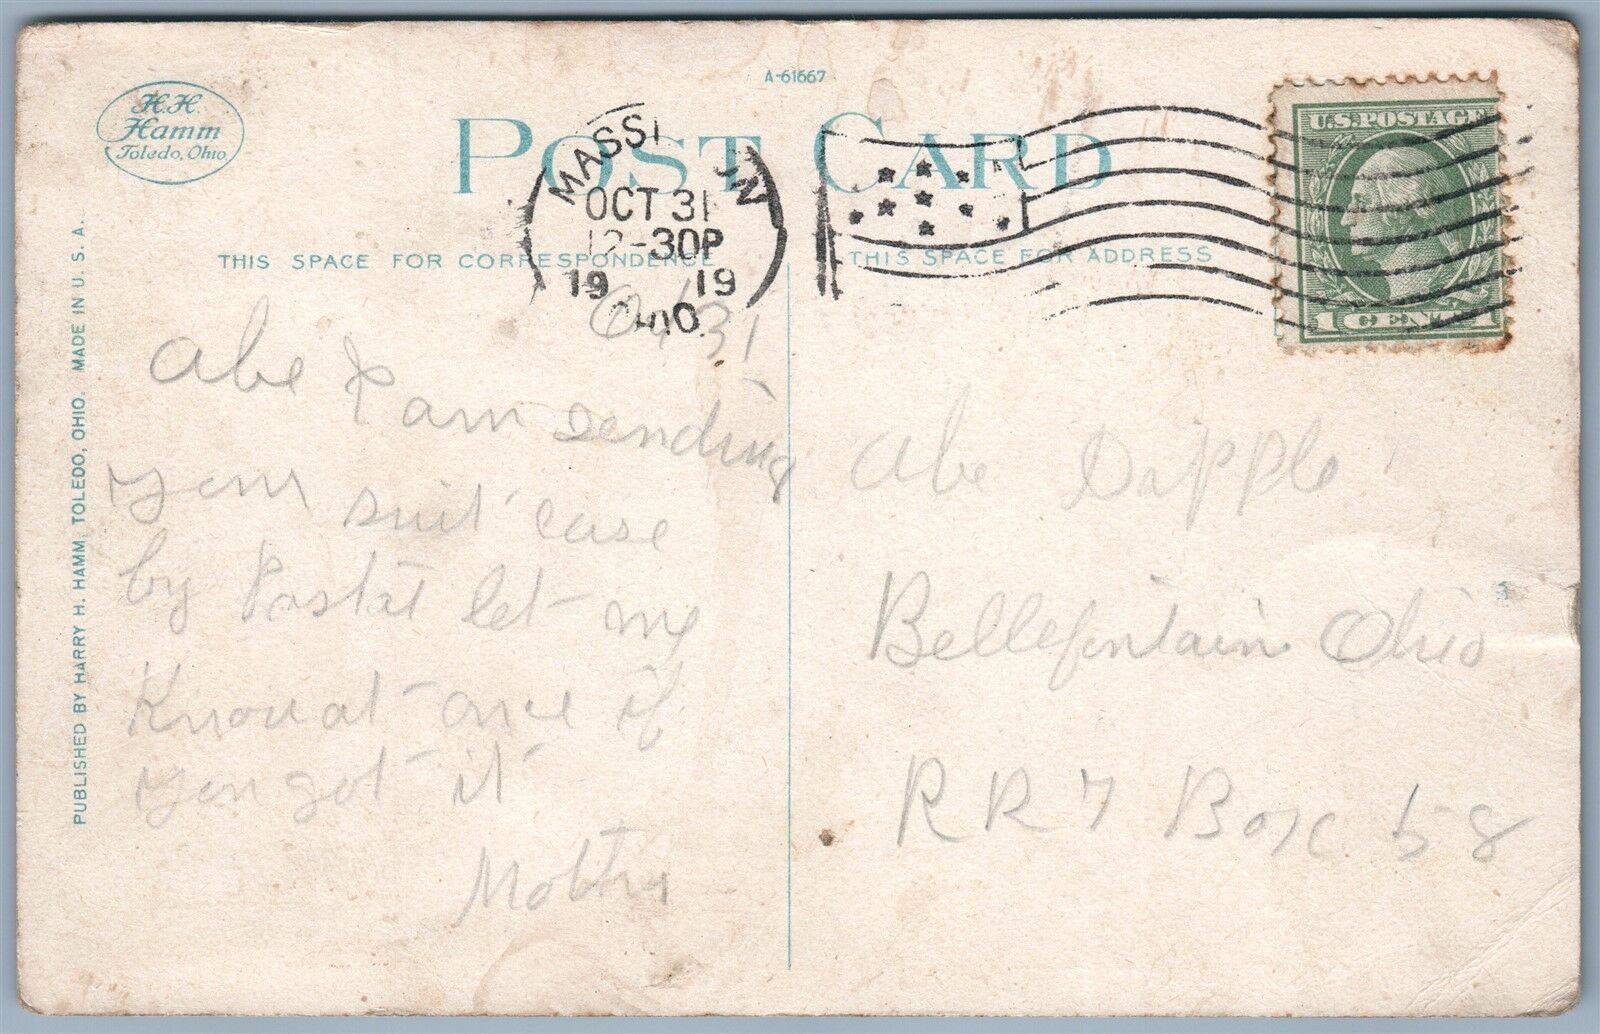 A-61667
H.H.
Hamm
Toledo, Ohio.
POST CARD
MASSI ON
OCT 31
12-30P
19 19
OHIO
U.S. POSTAGE
1 CENT 1
THIS SPACE FOR CORRESPONDENCE
THIS SPACE FOR ADDRESS
PUBLISHED BY HARRY H. HAMM, TOLEDO, OHIO. MADE IN U. S. A.
Oct 31
Abe I am sending
your suit case
by Postat let me
Know at once if
you got it
Mother
Abe Dipple
Bellefontain Ohio
RR 7 Box 58